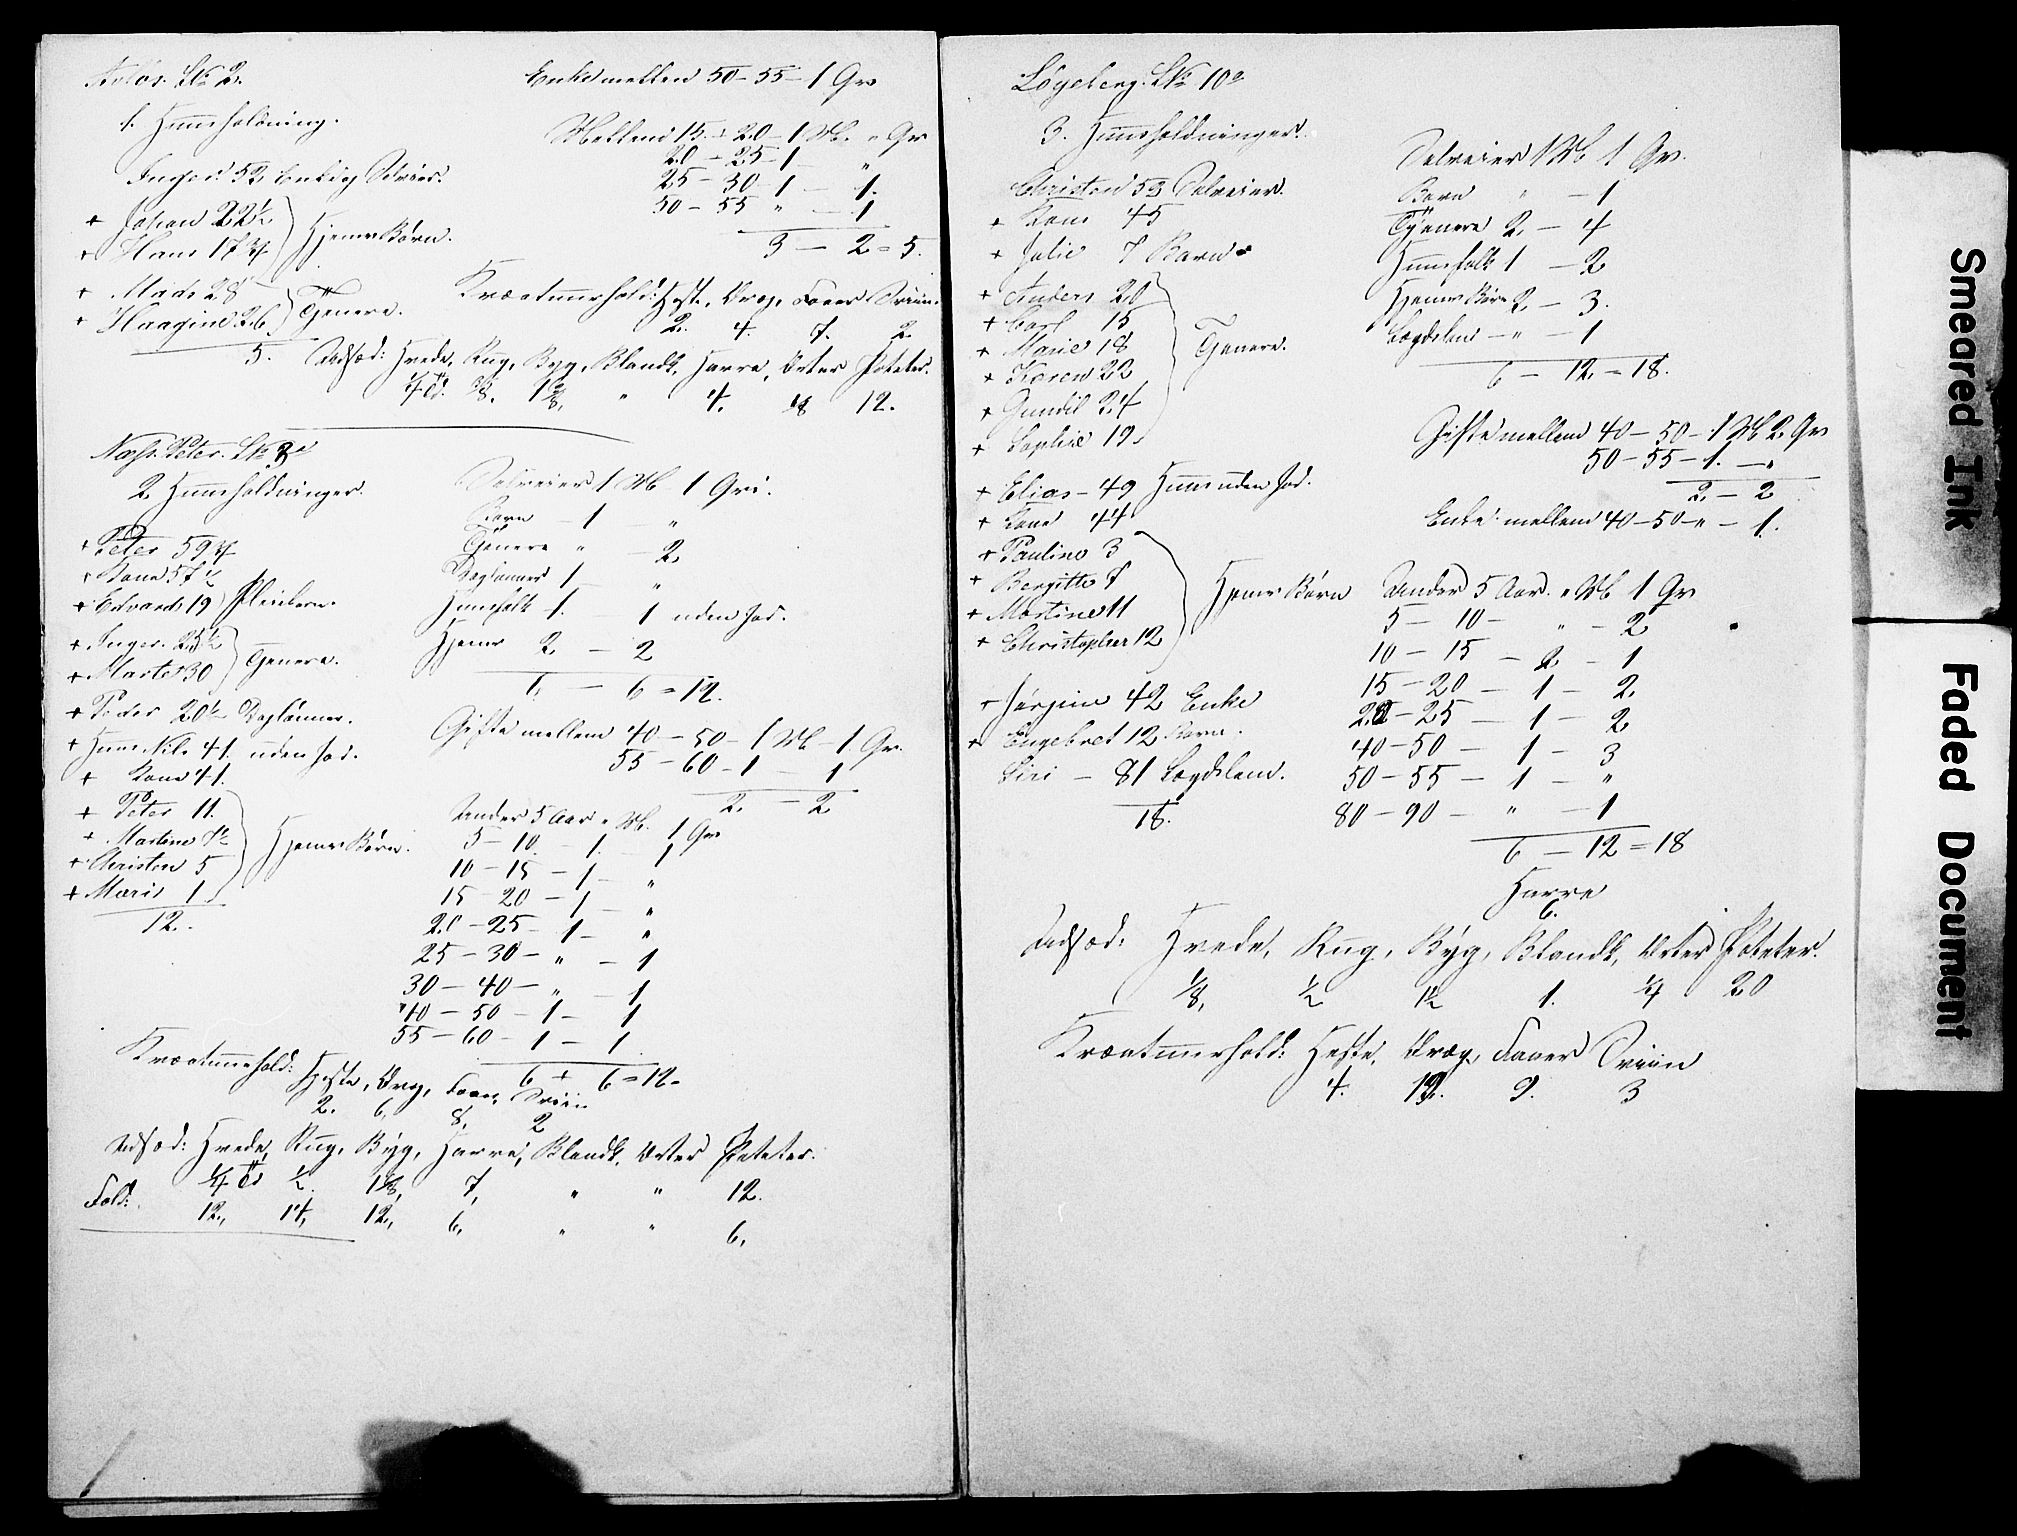 Huusholdning.
Inger 52 Enke og
+ Johan 22½
+ Hans 17¾
Hjemv. Børn.
+ Mads 28
+ Haagine 26
Tjenere.
5.
Enke mellem 50 - 55 - 1 Qv
Mellem 15 - 20 - 1 M. " Qv
20 - 25 - 1 "
25 - 30 - 1 - 1.
50 - 55 " - 1
3 - 2 = 5.
Kreaturhold: Heste, Qvæg, Faarer Sviin.
2. 4. 7. 2
Udsæd: Hvede, Rug, Byg, Blandk, Havre, Erter Poteter.
¼ Td. 3/8. 1 3/8, " 4. 1/8 12.
Næss. Peter. LNo
2 Huusholdninger.
+ Peter 59¾
+ Kone 57½
+ Edvard 19 Pleiebarn.
+ Inger 25½
+ Marte 30
Tjenere.
+ Peder 20½ Daglønner.
+ Huusm. Nils 41. uden Jord.
+ Kone 41.
+ Peter 11.
+ Martine 7½
+ Christen 5
+ Marie 1
Hjemv. Børn.
12.
Selveier 1 M 1 Qv.
Børn - 1 "
Tjenere " - 2.
Daglønner 1 - "
Huusfolk 1. 1 uden Jord.
Hjemv 2 - 2
6. - 6 = 12.
Gifte mellem 40 - 50 - 1 M - 1 Qv.
55 - 60 - 1 - 1
2. - 2
Under 5 Aar " M. 1 Qv
5 - 10. - 1. - 1
10 - 15 - 1 - "
15 - 20 - 1 - "
20 - 25 - 1 - "
25 - 30 - " - 1
30 - 40 - " - 1
40 - 50 - 1 - 1
55 - 60 - 1 - 1
6 + 6 = 12
Kreaturhold: Heste, Qvæg, Faar, Sviin
2. 6. 8, 2
Udsæd: Hvede, Rug, Byg, Havre, Blandk, Erter Poteter.
¼ Td ½ 1 1/8, 7, " " 12.
Fold: 12, 14, 12, 6, " " 6,
Løgeberg. LNo 10a
3. Huusholdninger.
Christen 53 Selveier.
+ Kone 45
+ Julie 7 Barn
+ Anders 20
+ Carl 15
+ Marie 18
+ Karen 22
+ Gundil 24
+ Sophie 19
Tjenere.
+ Elias - 49 Huusm uden Jord.
+ Kone 44
+ Pauline 3
+ Bergitte 7
+ Martine 11
+ Christopher 12
Hjemv Børn
- Jørgine 42 Enke
+ Engebret 12 Barn.
Siri - 81 Lægdslem.
18.
Selveier 1 M 1 Qv.
Børn " - 1
Tjenere 2 - 4
Huusfolk 1 - 2
Hjemv Børn 2 - 3.
Lægdslem - " - 1
6 - 12 = 18.
Gifte mellem 40 - 50 - 1 M 2 Qv
50 - 55 - 1. - "
2 - 2
Enke mellem 40 - 50 - " - 1.
Under 5 Aar. " M 1 Qv
5 - 10 - " - 2
10 - 15 - 2 - 1
15 - 20 - 1 - 2
20 - 25 - 1 - 2
40 - 50 - 1 - 3
50 - 55 - 1 - "
80 - 90 - " - 1
6 - 12 = 18
Havre
6.
Udsæd: Hvede, Rug, Byg, Blandk, Erter Poteter.
1/8, ½ 1½ 1. ¼ 20
Kreaturhold: Heste, Qvæg, Faarer Sviin
4. 12. 9. 3
Smeared Ink
Faded Document